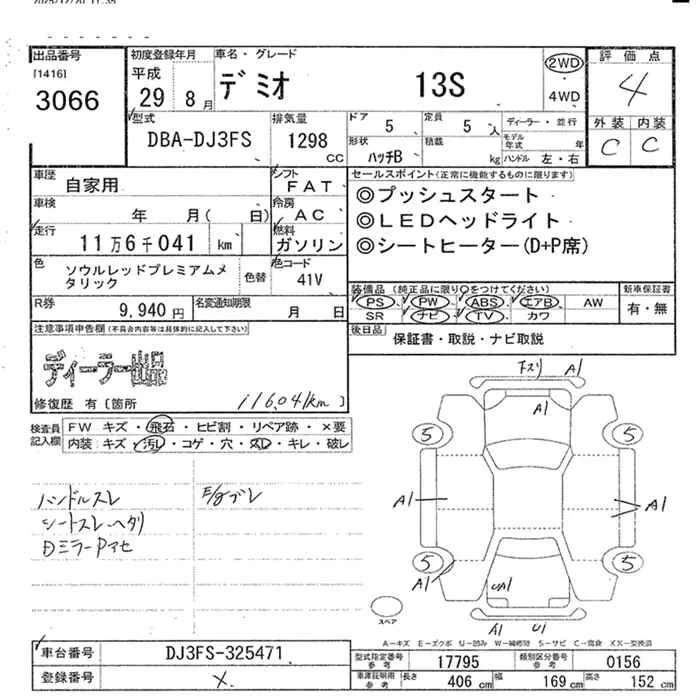 出品番号
[1416]
3066
初度登録年月
平成
29年 8月
車名・グレード
デミオ 13S
2WD
4WD
評価点
4
外装 内装
C C
型式
DBA-DJ3FS
排気量
1298
CC
ドア
5
定員
5人
ディーラー・並行
形状
ハッチB
積載
kg
モデル年式
年
ハンドル 左・右
車歴
自家用
シフト
FAT
車検
年 月( 日)
冷房
AC
走行
11万6千041 km
燃料
ガソリン
色
ソウルレッドプレミアムメタリック
色替
色コード
41V
R券
9,940円
名変通知期限
月 日
セールスポイント(正常に機能するものに限ります)
◎プッシュスタート
◎LEDヘッドライト
◎シートヒーター(D+P席)
装備品(純正品に限り○をつけてください)
新車保証書
PS PW ABS エアB AW
SR ナビ TV カワ
有・無
後日品
保証書・取説・ナビ取説
注意事項申告欄(不具合内容等は具体的に記入して下さい)
ディーラー出品
修復歴 有〔箇所
116,041km)
検査員記入欄
FW キズ・飛石・ヒビ割・リペア跡・×要
内装:キズ・汚れ・コゲ・穴・スレ・キレ・破レ
ハンドルスレ
シートスレヘタリ
E/gブレ
A1
A1
5
5
A1
A1
5
5
A1
A1
U1
スペア
A-キズ E-エクボ U-凹み W-補修跡 S-サビ C-腐食 XX-交換済
車台番号
DJ3FS-325471
登録番号
型式指定番号
参考
17795
類別区分番号
参考
0156
車庫証明用
参考
長さ
406cm
幅
169cm
高さ
152cm